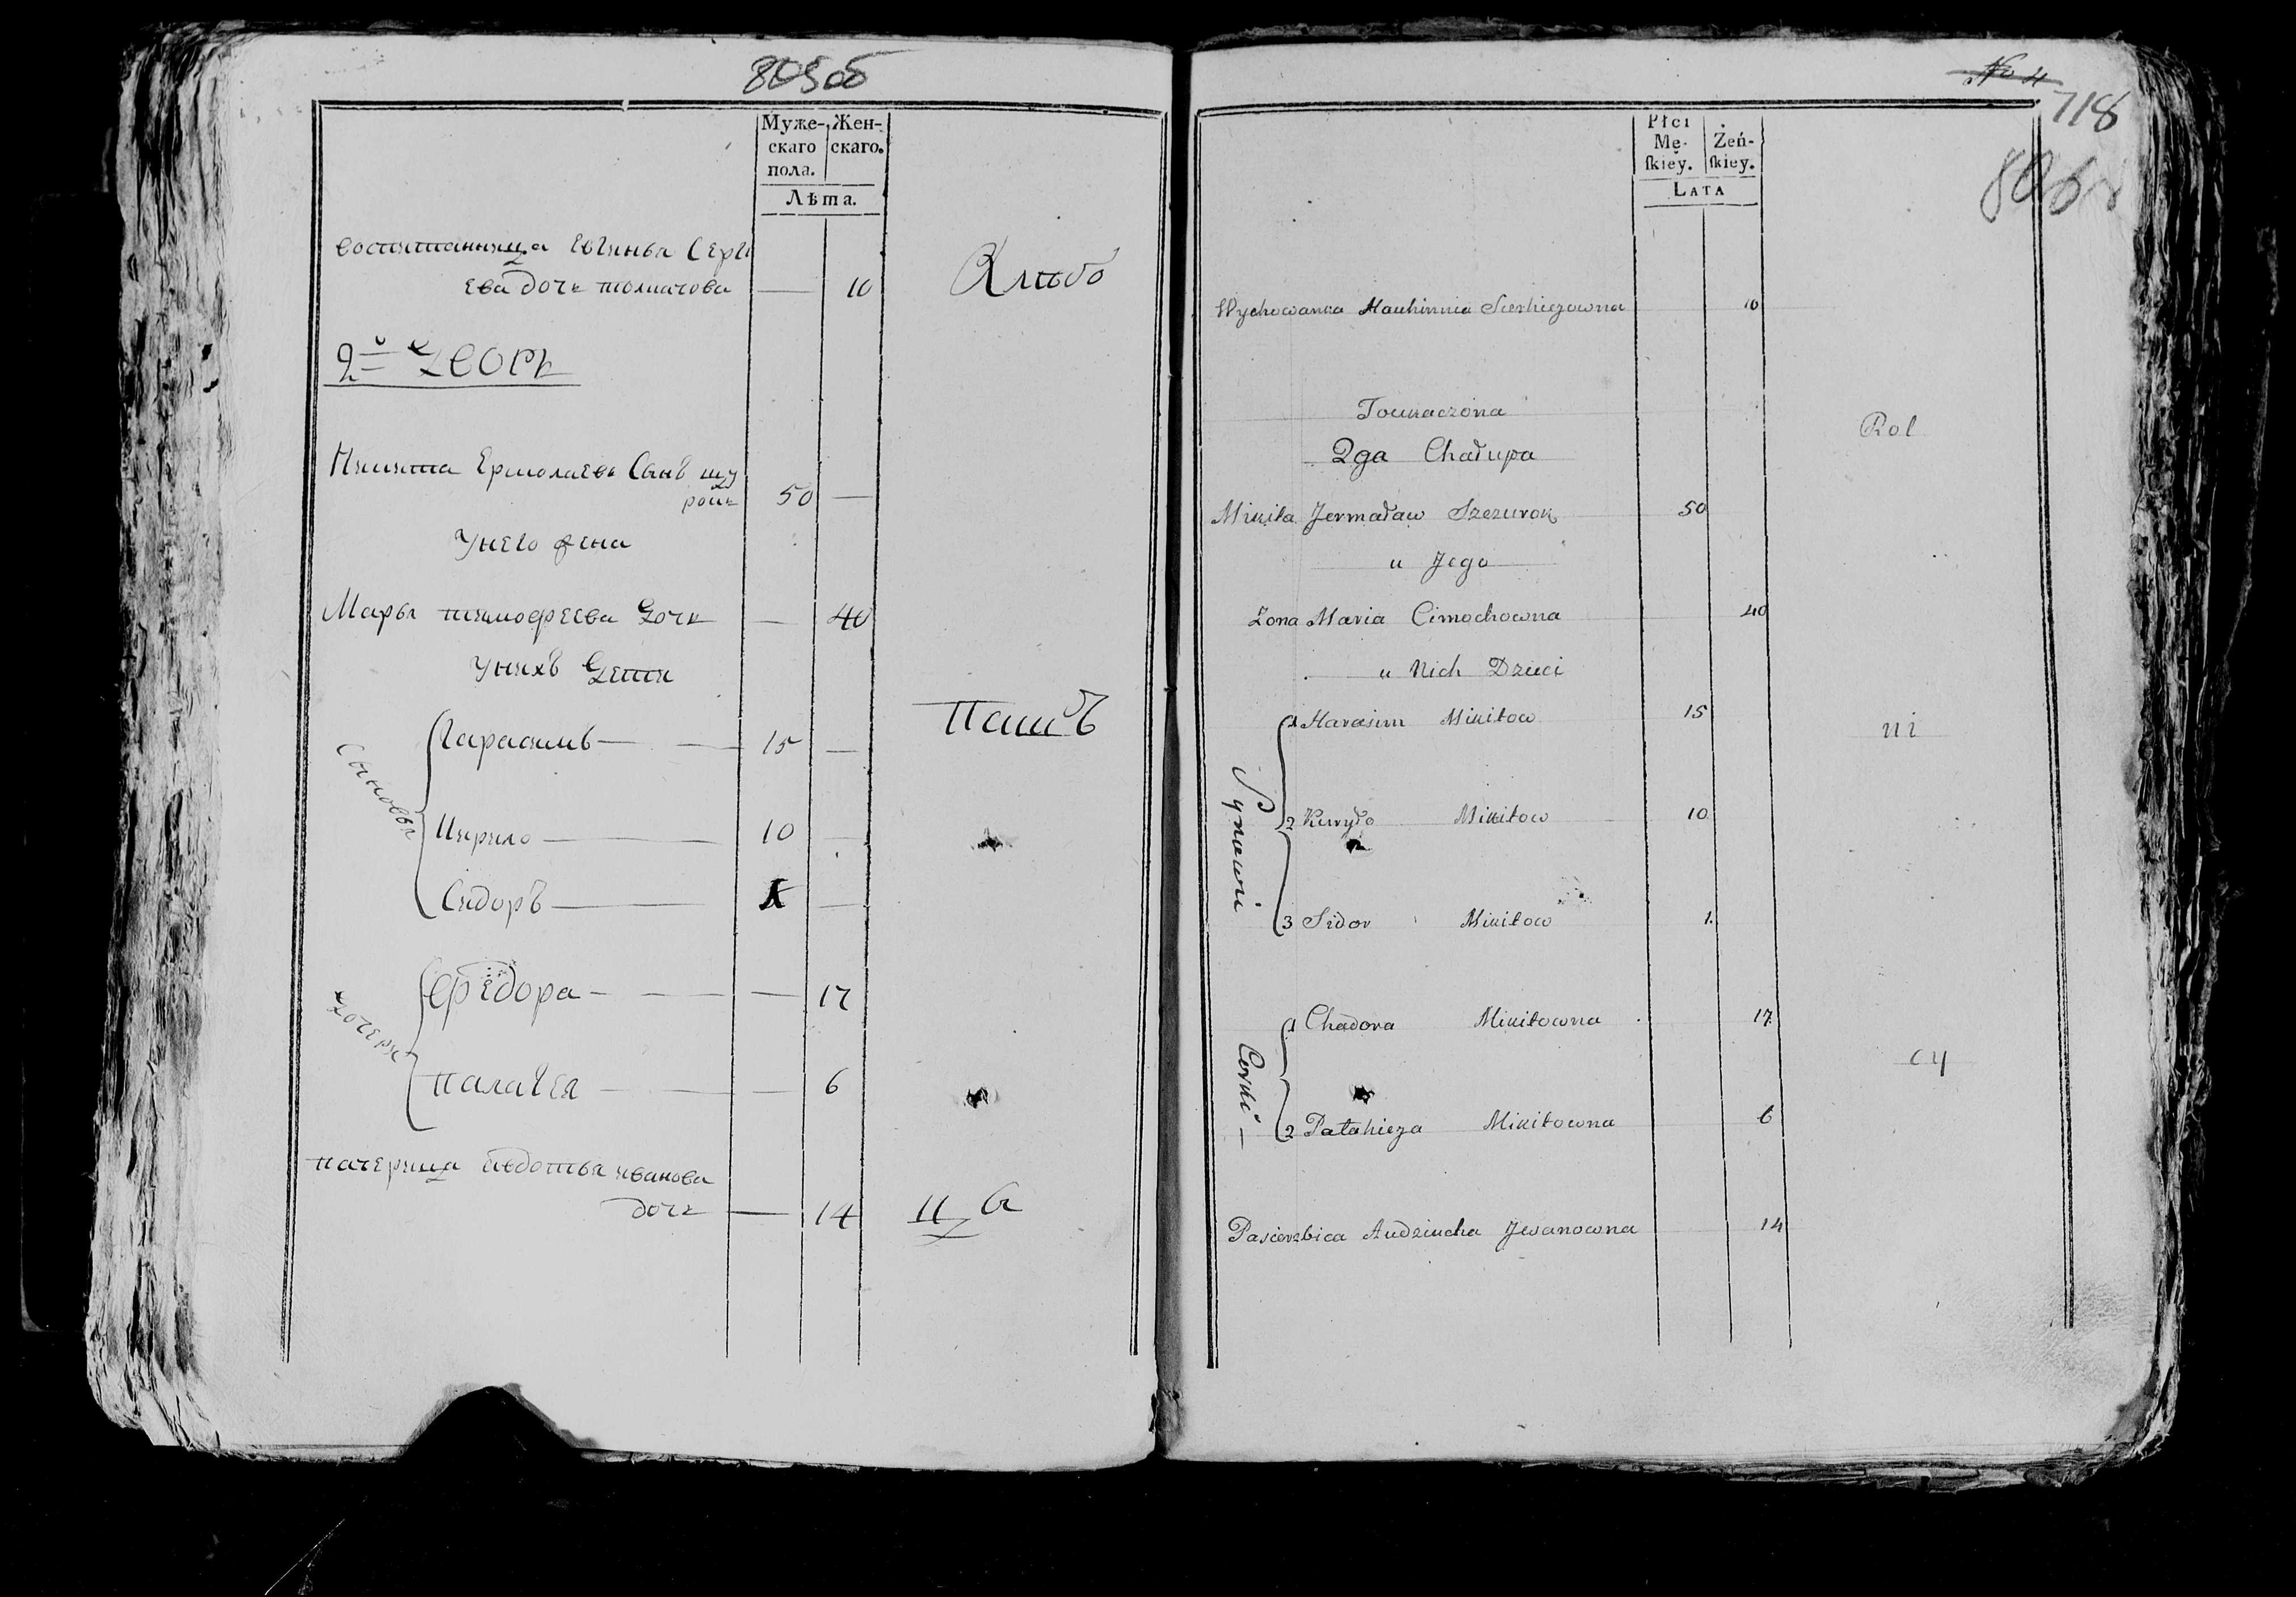 805об
Муже-
скаго
пола.
Жен-
скаго.
Лѣта.
воспитанница Евгинья Серги
ева дочь толмачова — 10
Хлѣбо
2й дворъ
Никита Ермолаевъ Сынъ щу
рокъ 50 —
Унего жена
Марья тимофеева дочь — 40
Унихъ дети
Сыновья
Гарасимъ — 15 —
Кирило — 10 —
Сидоръ — 1 —
пашъ
дочери
Фёдора — — 17
палагея — — 6
пачерица Авдотья иванова
дочь — 14
цы
No 4
718
806
Płci
Mę-
ſkiey.
Żeń-
ſkiey.
LATA
Wychowanka Hauhinnia Sierhiezowna 10
Toumaczona
2ga Chałupa
Rol
Mikita Jermaław Szczurok 50
u Jego
Zona Maria Cimochowna 40
u Nich Dzieci
Synowie
1 Harasim Mikitow 15
ni
2 Kiryło Mikitow 10
3 Sidor Mikitow 1.
Corki —
1 Chadora Mikitowna 17.
cy
2 Patahieza Mikitowna 6
Pasierzbica Audziucha Jwanowna 14